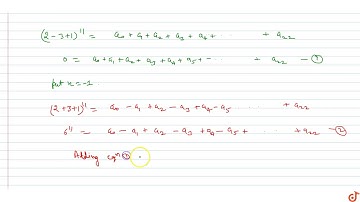 (2-3+1)^11 = a0 + a1 + a2 + a3 + a4 + ... + a22
0 = a0 + a1 + a2 + a3 + a4 + a5 + ... + a22 — ①
put x = -1
(2+3+1)^11 = a0 - a1 + a2 - a3 + a4 - a5 ... + a22
6^11 = a0 - a1 + a2 - a3 + a4 - a5 + ... + a22 — ②
Adding eqn ①